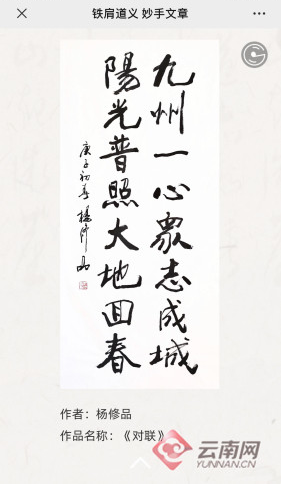 铁肩道义 妙手文章
九州一心眾志成城
陽光普照大地回春
庚子初春 楊修品
作者：杨修品
作品名称：《对联》
云南网
YUNNAN.CN